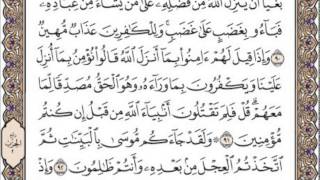 بَغْيًا أَن يُنَزِّلَ ٱللَّهُ مِن فَضْلِهِۦ عَلَىٰ مَن يَشَآءُ مِنْ عِبَادِهِۦ
فَبَآءُو بِغَضَبٍ عَلَىٰ غَضَبٍۚ وَلِلْكَـٰفِرِينَ عَذَابٌ مُّهِينٌ
٩٠ وَإِذَا قِيلَ لَهُمْ ءَامِنُوا۟ بِمَآ أَنزَلَ ٱللَّهُ قَالُوا۟ نُؤْمِنُ بِمَآ أُنزِلَ
عَلَيْنَا وَيَكْفُرُونَ بِمَا وَرَآءَهُۥ وَهُوَ ٱلْحَقُّ مُصَدِّقًا لِّمَا
مَعَهُمْۗ قُلْ فَلِمَ تَقْتُلُونَ أَنۢبِيَآءَ ٱللَّهِ مِن قَبْلُ إِن كُنتُم
مُّؤْمِنِينَ ٩١ ۞ وَلَقَدْ جَآءَكُم مُّوسَىٰ بِٱلْبَيِّنَـٰتِ ثُمَّ
ٱتَّخَذْتُمُ ٱلْعِجْلَ مِنۢ بَعْدِهِۦ وَأَنتُمْ ظَـٰلِمُونَ ٩٢ وَإِذْ